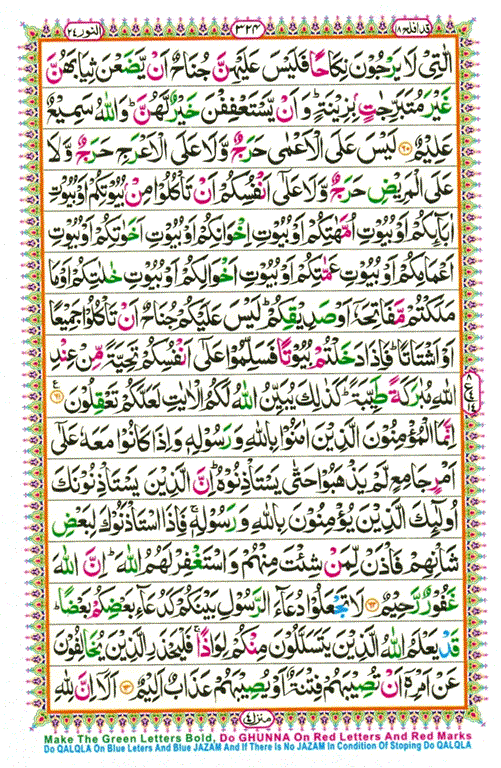 النور ٢٤ ٣٢٤ قد افلح ١٨
الّٰتِیْ لَا یَرْجُوْنَ نِكَاحًا فَلَیْسَ عَلَیْهِنَّ جُنَاحٌ اَنْ یَّضَعْنَ ثِیَابَهُنَّ
غَیْرَ مُتَبَرِّجٰتٍۭ بِزِیْنَةٍؕ وَ اَنْ یَّسْتَعْفِفْنَ خَیْرٌ لَّهُنَّؕ وَ اللّٰهُ سَمِیْعٌ
عَلِیْمٌ ۶۰ لَیْسَ عَلَى الْاَعْمٰى حَرَجٌ وَّ لَا عَلَى الْاَعْرَجِ حَرَجٌ وَّ لَا
عَلَى الْمَرِیْضِ حَرَجٌ وَّ لَا عَلٰۤى اَنْفُسِكُمْ اَنْ تَاْكُلُوْا مِنْۢ بُیُوْتِكُمْ اَوْ بُیُوْتِ
اٰبَآىِٕكُمْ اَوْ بُیُوْتِ اُمَّهٰتِكُمْ اَوْ بُیُوْتِ اِخْوَانِكُمْ اَوْ بُیُوْتِ اَخَوٰتِكُمْ اَوْ بُیُوْتِ
اَعْمَامِكُمْ اَوْ بُیُوْتِ عَمّٰتِكُمْ اَوْ بُیُوْتِ اَخْوَالِكُمْ اَوْ بُیُوْتِ خٰلٰتِكُمْ اَوْ مَا
مَلَكْتُمْ مَّفَاتِحَهٗۤ اَوْ صَدِیْقِكُمْؕ لَیْسَ عَلَیْكُمْ جُنَاحٌ اَنْ تَاْكُلُوْا جَمِیْعًا
اَوْ اَشْتَاتًاؕ فَاِذَا دَخَلْتُمْ بُیُوْتًا فَسَلِّمُوْا عَلٰۤى اَنْفُسِكُمْ تَحِیَّةً مِّنْ عِنْدِ
اللّٰهِ مُبٰرَكَةً طَیِّبَةًؕ كَذٰلِكَ یُبَیِّنُ اللّٰهُ لَكُمُ الْاٰیٰتِ لَعَلَّكُمْ تَعْقِلُوْنَ ۶۱ ع
اِنَّمَا الْمُؤْمِنُوْنَ الَّذِیْنَ اٰمَنُوْا بِاللّٰهِ وَ رَسُوْلِهٖ وَ اِذَا كَانُوْا مَعَهٗ عَلٰۤى
اَمْرٍ جَامِعٍ لَّمْ یَذْهَبُوْا حَتّٰى یَسْتَاْذِنُوْهُؕ اِنَّ الَّذِیْنَ یَسْتَاْذِنُوْنَكَ
اُولٰٓىِٕكَ الَّذِیْنَ یُؤْمِنُوْنَ بِاللّٰهِ وَ رَسُوْلِهٖۚ فَاِذَا اسْتَاْذَنُوْكَ لِبَعْضِ
شَاْنِهِمْ فَاْذَنْ لِّمَنْ شِئْتَ مِنْهُمْ وَ اسْتَغْفِرْ لَهُمُ اللّٰهَؕ اِنَّ اللّٰهَ
غَفُوْرٌ رَّحِیْمٌ ۶۲ لَا تَجْعَلُوْا دُعَآءَ الرَّسُوْلِ بَیْنَكُمْ كَدُعَآءِ بَعْضِكُمْ بَعْضًاؕ
قَدْ یَعْلَمُ اللّٰهُ الَّذِیْنَ یَتَسَلَّلُوْنَ مِنْكُمْ لِوَاذًاۚ فَلْیَحْذَرِ الَّذِیْنَ یُخَالِفُوْنَ
عَنْ اَمْرِهٖۤ اَنْ تُصِیْبَهُمْ فِتْنَةٌ اَوْ یُصِیْبَهُمْ عَذَابٌ اَلِیْمٌ ۶۳ اَلَاۤ اِنَّ لِلّٰهِ
منزل ٤
Make The Green Letters Bold, Do GHUNNA On Red Letters And Red Marks
Do QALQLA On Blue Leters And Blue JAZAM And If There Is No JAZAM In Condition Of Stoping Do QALQLA